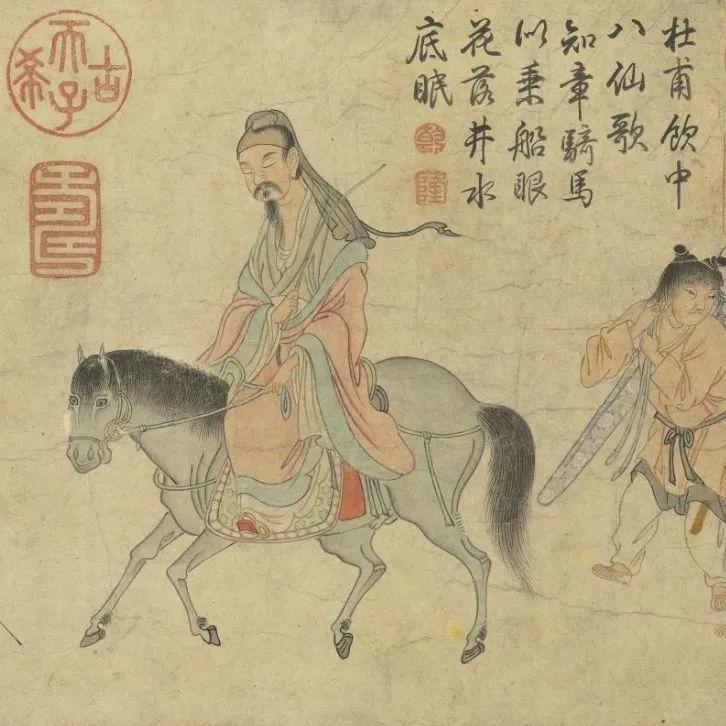 杜甫飲中
八仙歌
知章騎馬
似乘船眼
花落井水
底眠
古希天子